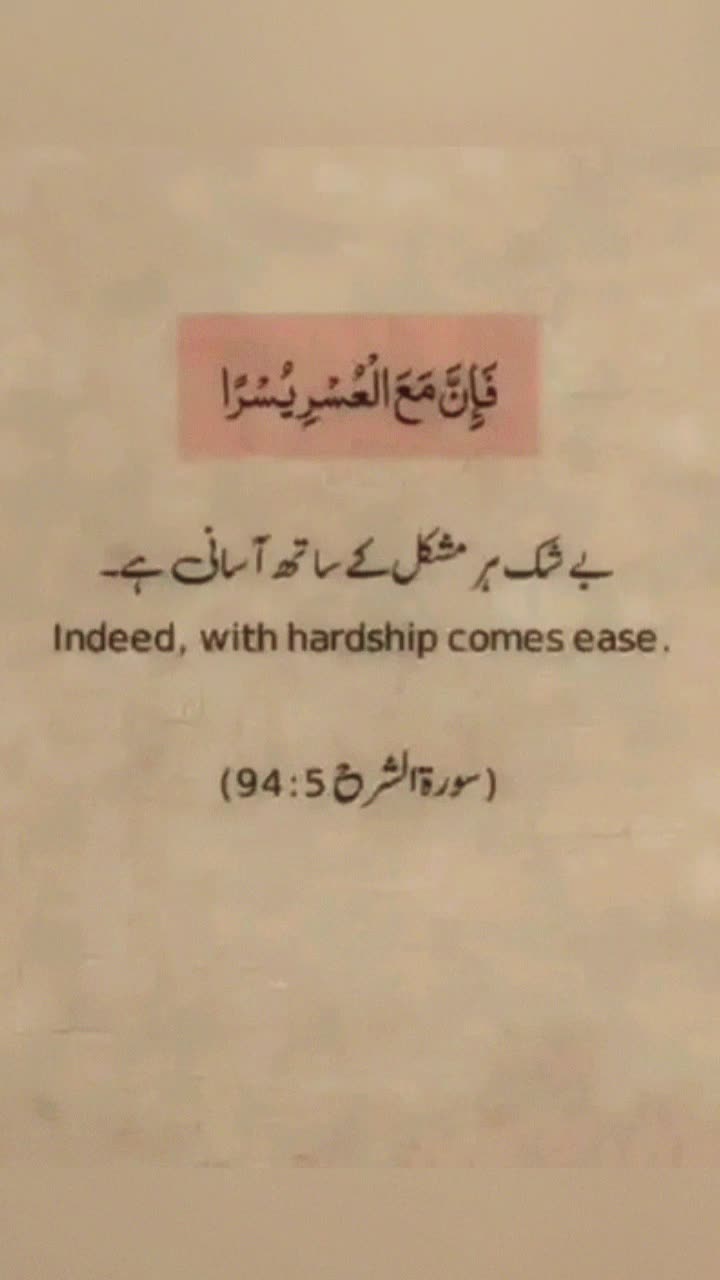 فَإِنَّ مَعَ الْعُسْرِ يُسْرًا
بے شک ہر مشکل کے ساتھ آسانی ہے۔
Indeed, with hardship comes ease.
(سورۃ الشرح 94:5)